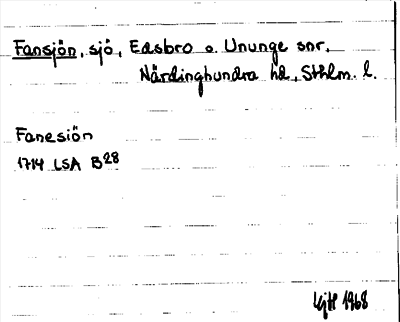 Fansjön, sjö, Edsbro o. Ununge snr,
Närdinghundra hd, Sthlm. l.
Fanesiön
1714 LSA B28
1968